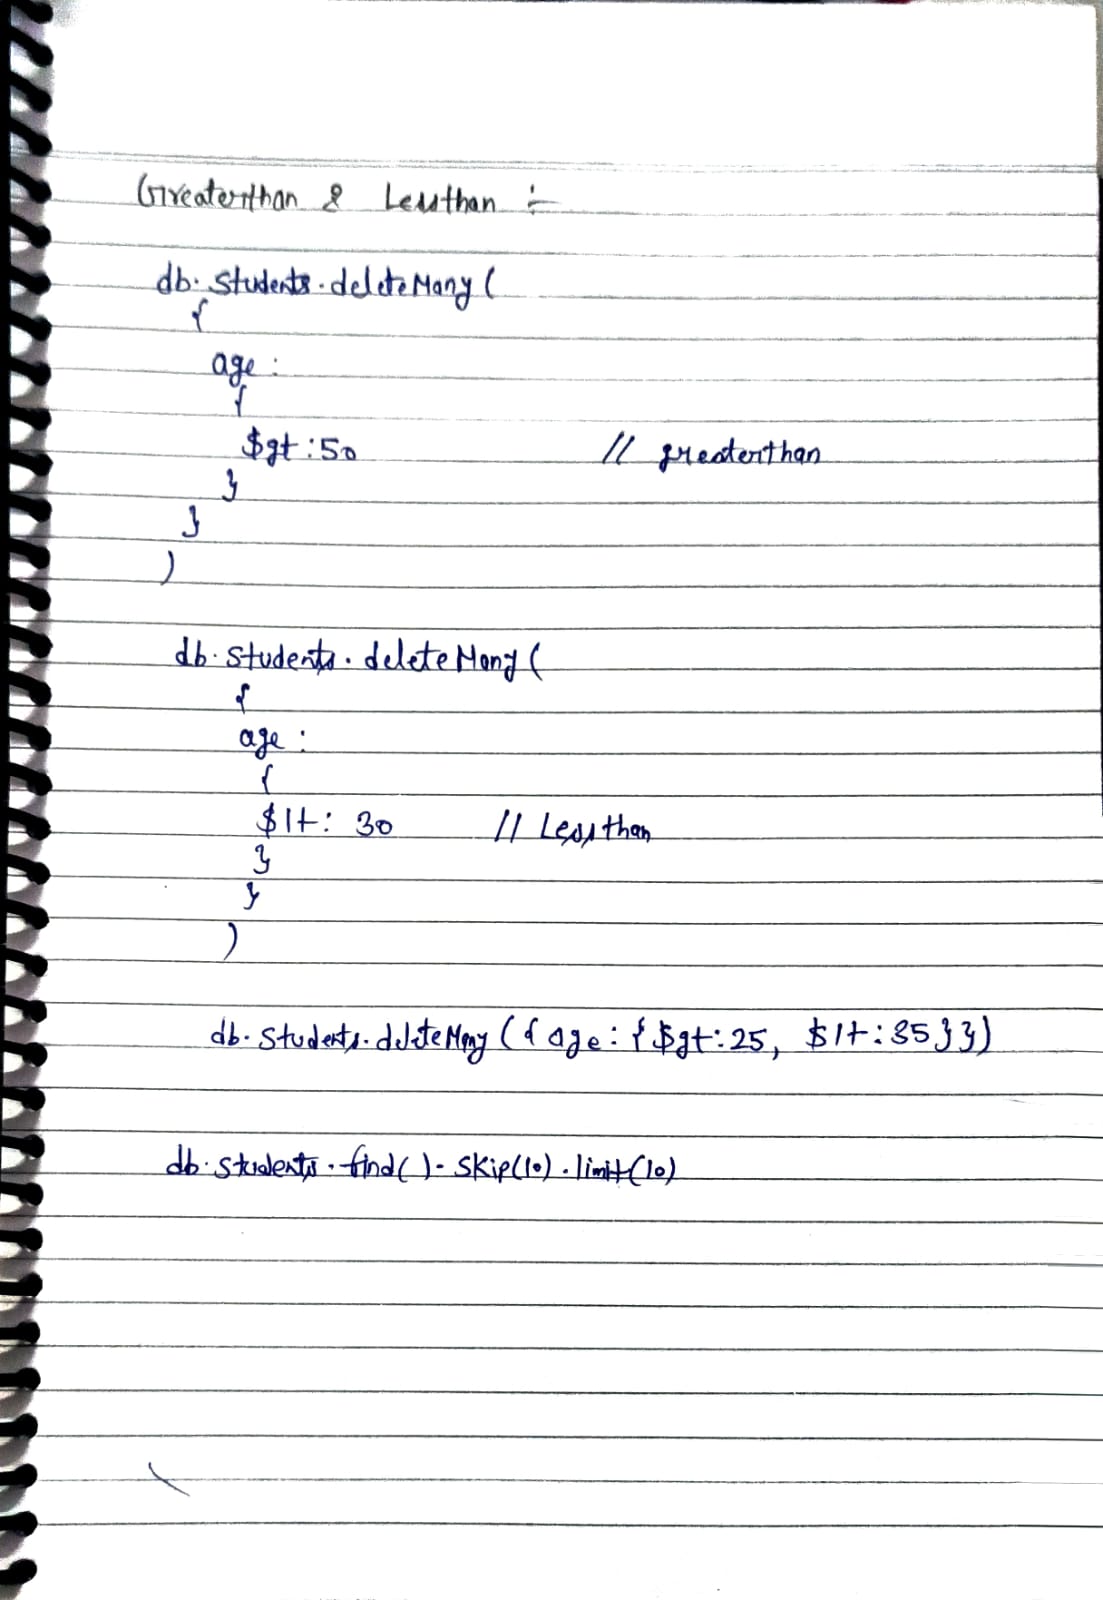 Greaterthan & Lessthan :-
db.students.deleteMany(
{
age :
{
$gt : 50 // greaterthan
}
}
)
db.students.deleteMany(
{
age :
{
$lt : 30 // Lessthan
}
}
)
db.students.deleteMany({age:{$gt:25, $lt:35}})
db.students.find().skip(10).limit(10)